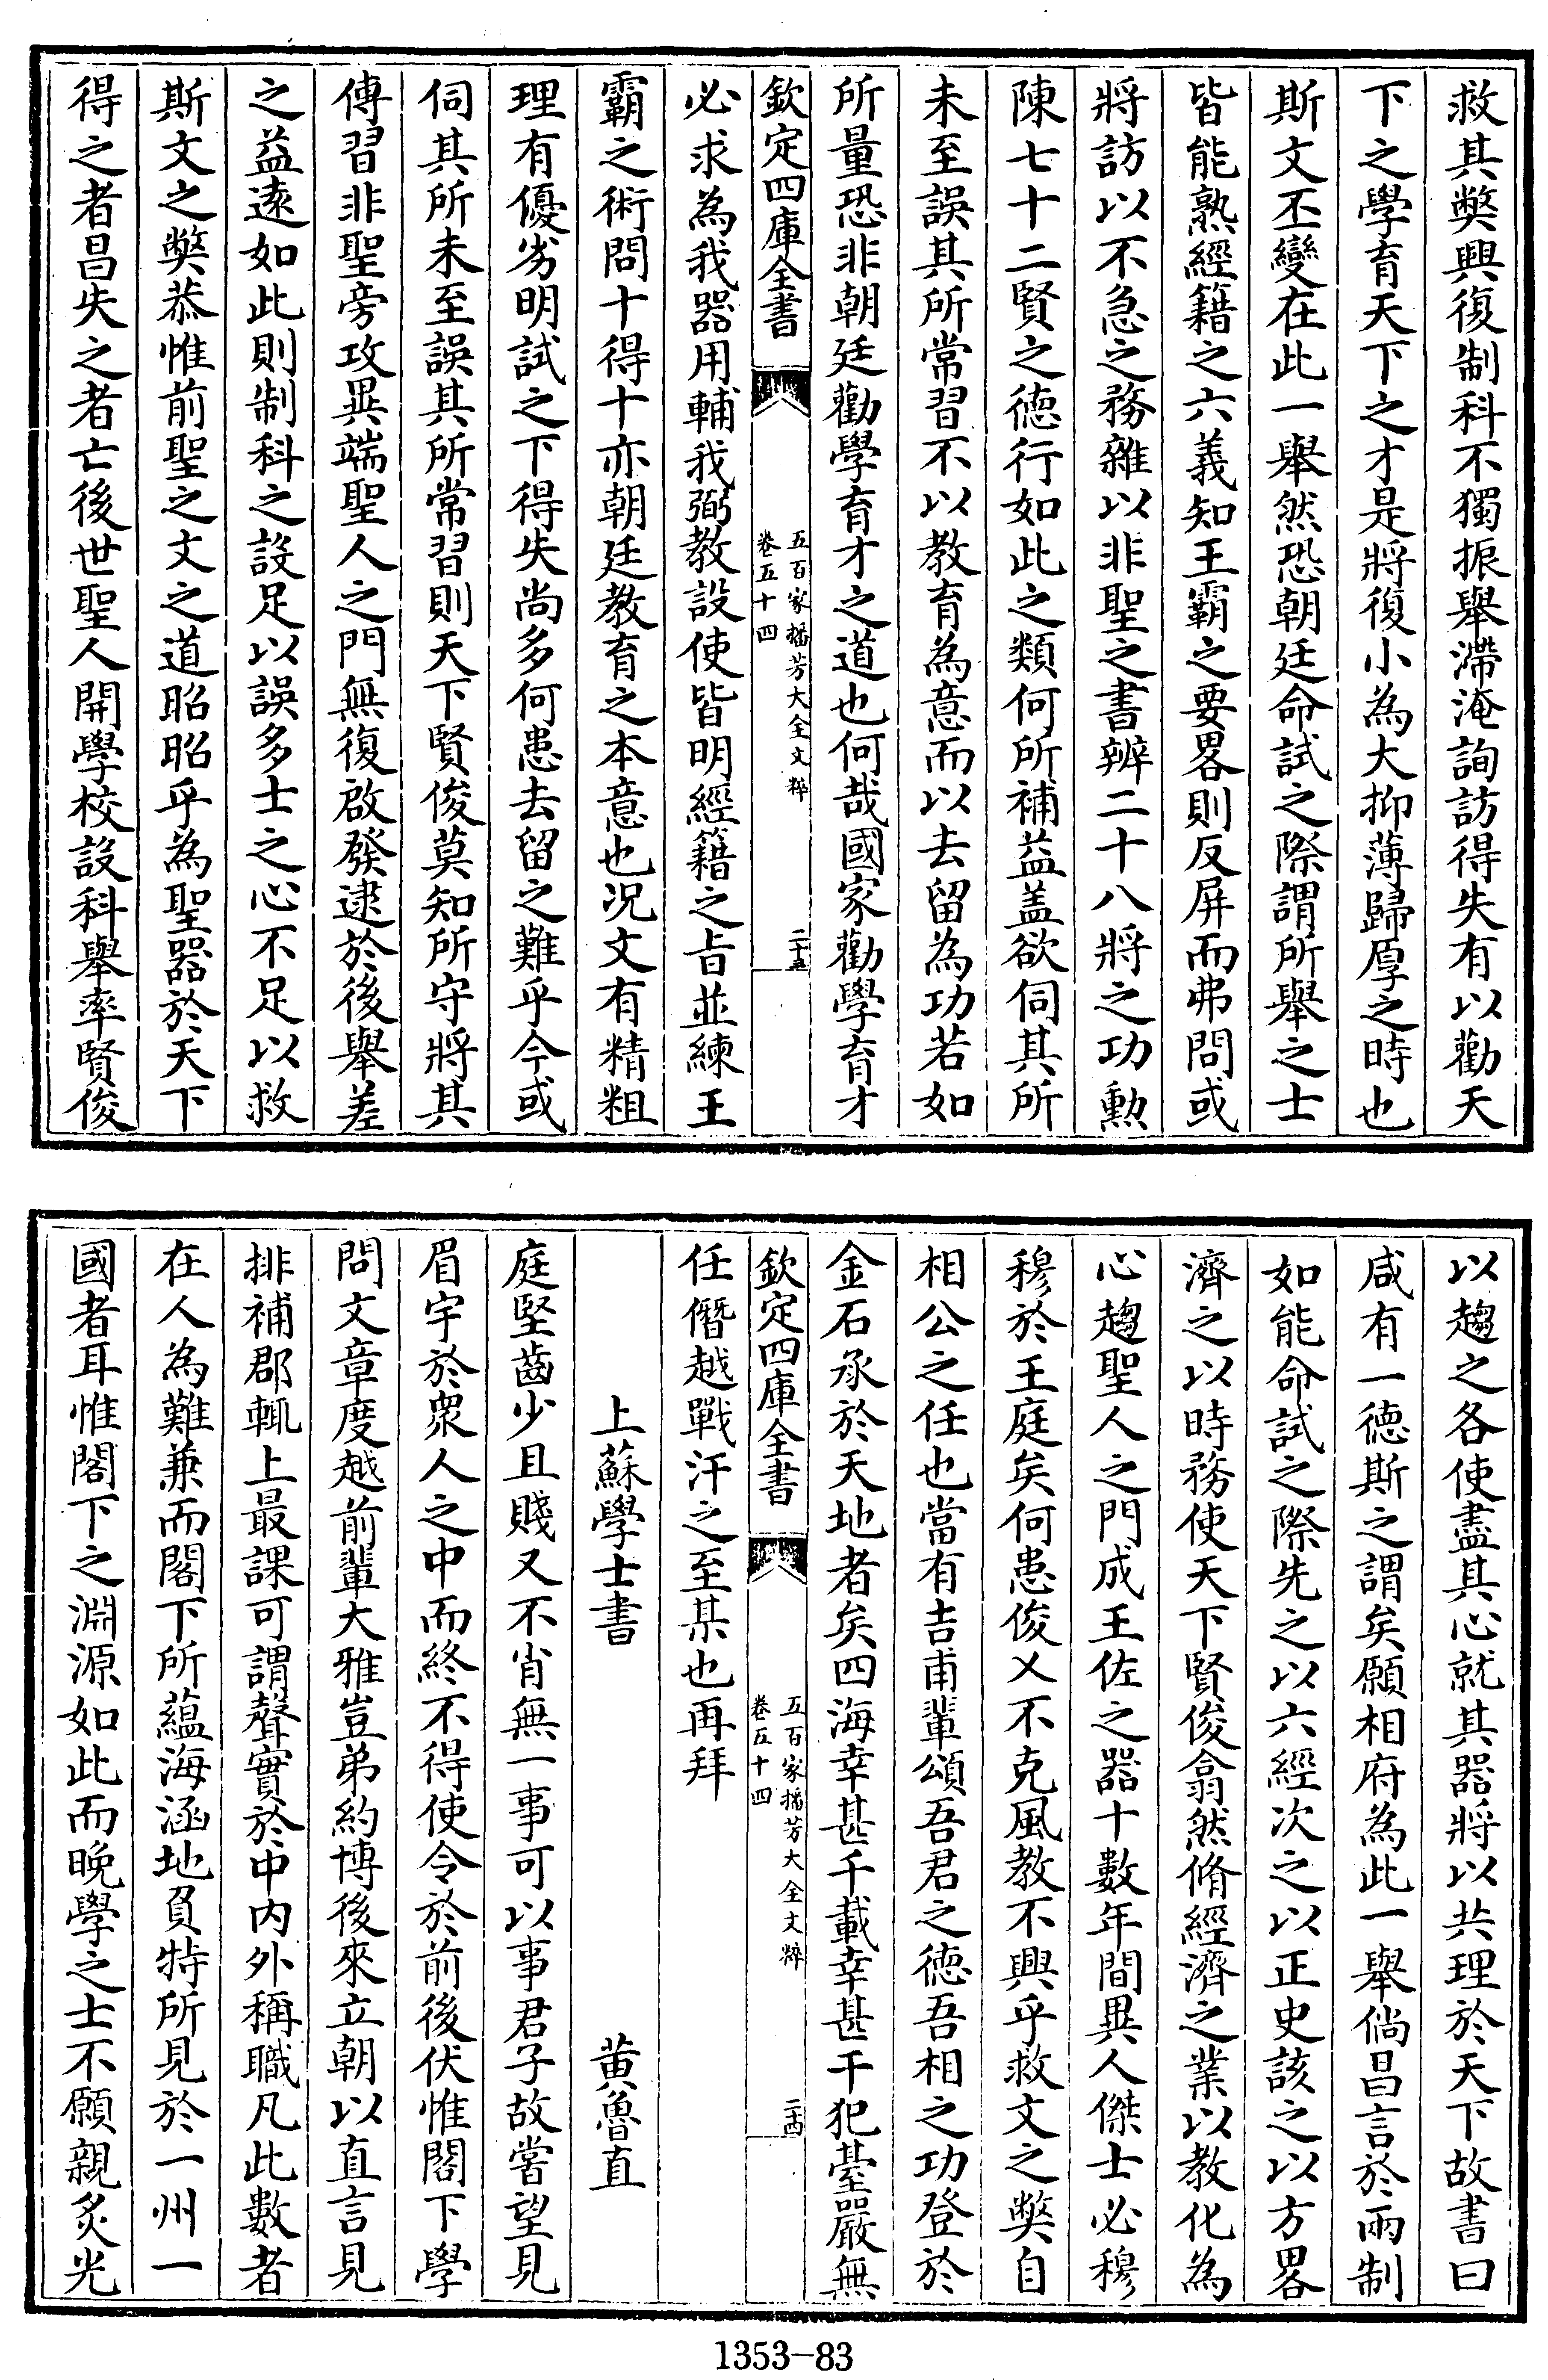 救其弊興復制科不獨振舉滯淹詢訪得失有以勸天
下之學育天下之才是將復小為大抑薄歸厚之時也
斯文丕變在此一舉然恐朝廷命試之際謂所舉之士
皆能熟經籍之六義知王霸之要畧則反屏而弗問或
將訪以不急之務雜以非聖之書辨二十八將之功勲
陳七十二賢之德行如此之類何所補益盖欲伺其所
未至誤其所常習不以教育為意而以去留為功若如
所量恐非朝廷勸學育才之道也何哉國家勸學育才
欽定四庫全書
五百家播芳大全文粹
卷五十四
二十三
必求為我器用輔我弼教設使皆明經籍之旨並練王
霸之術問十得十亦朝廷教育之本意也况文有精粗
理有優劣明試之下得失尚多何患去留之難乎今或
伺其所未至誤其所常習則天下賢俊莫知所守將其
傳習非聖旁攻異端聖人之門無復啟發逮於後舉差
之益遠如此則制科之設足以誤多士之心不足以救
斯文之弊恭惟前聖之文之道昭昭乎為聖器於天下
得之者昌失之者亡後世聖人開學校設科舉率賢俊
以趨之各使盡其心就其器將以共理於天下故書曰
咸有一德斯之謂矣願相府為此一舉倘昌言於兩制
如能命試之際先之以六經次之以正史該之以方畧
濟之以時務使天下賢俊翕然脩經濟之業以教化為
心趨聖人之門成王佐之器十數年間異人傑士必穆
穆於王庭矣何患俊乂不克風教不興乎救文之弊自
相公之任也當有吉甫輩頌吾君之德吾相之功登於
金石永於天地者矣四海幸甚千載幸甚干犯臺嚴無
欽定四庫全書
五百家播芳大全文粹
卷五十四
二十四
任僭越戰汗之至某也再拜
上蘇學士書　黄魯直
庭堅齒少且賤又不肖無一事可以事君子故嘗望見
眉宇於衆人之中而終不得使令於前後伏惟閣下學
問文章度越前輩大雅豈弟約博後來立朝以直言見
排補郡輒上最課可謂聲實於中內外稱職凡此數者
在人為難兼而閣下所蘊海涵地負特所見於一州一
國者耳惟閣下之淵源如此而晚學之士不願親炙光
1353-83